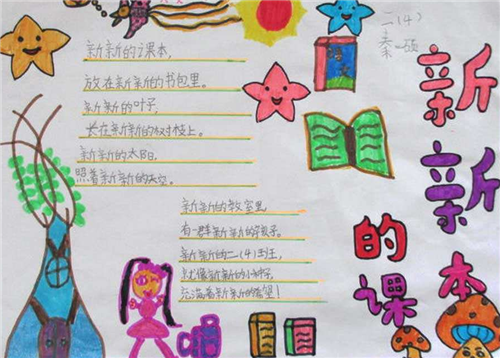 新新的课本
二(4)
语文
新新的课本,
放在新新的书包里。
新新的叶子,
长在新新的树枝上。
新新的太阳,
照着新新的天空。
新新的教室里
有一群新新的孩子。
新新的二(4)班,
就像新新的小
充满着新新的希望!